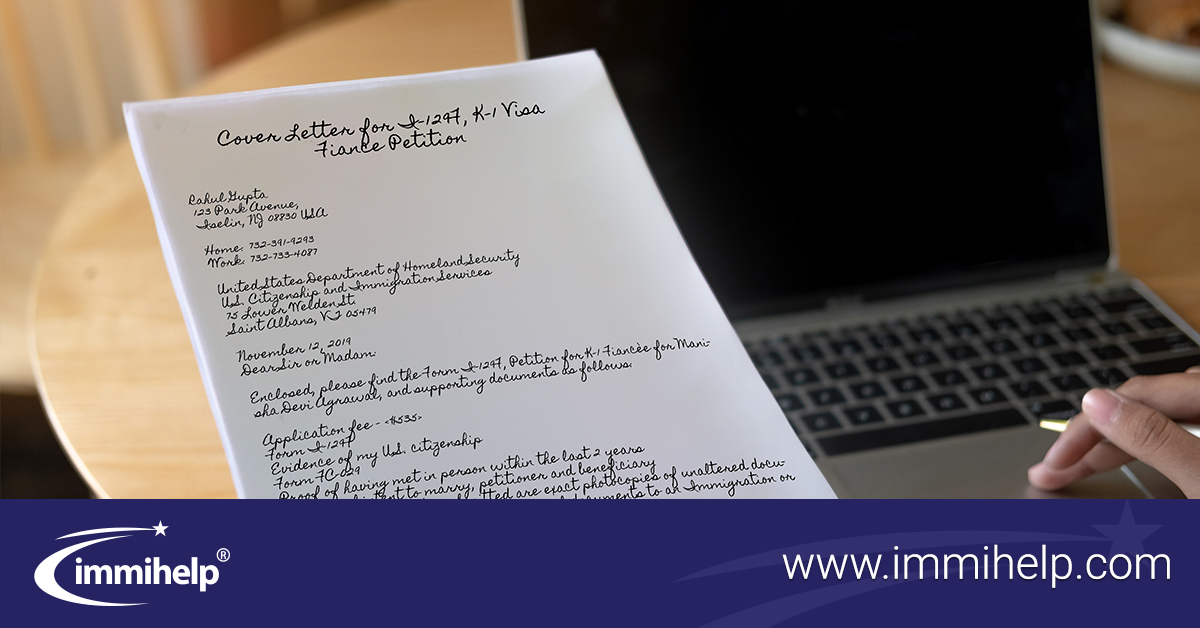 Cover Letter for I-1297, K-1 Visa
Fiance Petition
Rahul Gupta
123 Park Avenue,
Iselin, NJ 08830 USA
Home: 732-391-9293
Work: 732-733-4087
United States Department of Homeland Security
U.S. Citizenship and Immigration Services
75 Lower Welden St.
Saint Albans, VT 05479
November 12, 2019
Dear Sir or Madam:
Enclosed, please find the Form I-1297, Petition for K-1 Fiancèe for Mani-
sha Devi Agrawal, and supporting documents as follows:
Application fee - <$535>
Form I-1297
Evidence of my U.S. citizenship
Form FC-029
Proof of having met in person within the last 2 years
to marry, petitioner and beneficiary
are exact photocopies of unaltered docu-
documents to an Immigration or
immihelp®
www.immihelp.com